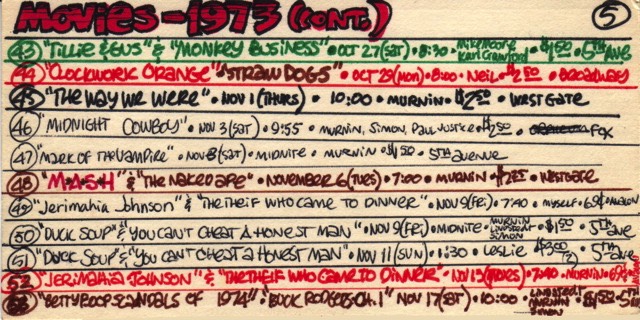 MOVIES - 1973 (CONT.) 5
43 "TILLIE & GUS" & "MONKEY BUSINESS" • OCT 27 (SAT) • 8:30 • MIKE MOORE KARL CRAWFORD • $1.50 • 5TH AVE
44 "CLOCKWORK ORANGE" "STRAW DOGS" • OCT 29 (MON) • 8:00 • NEIL • $2.50 • BROADWAY
45 "THE WAY WE WERE" • NOV 1 (THURS) • 10:00 • MURNIN • $2.50 • WESTGATE
46 "MIDNIGHT COWBOY" • NOV 3 (SAT) • 9:55 • MURNIN, SIMON, PAUL JUSTICE • $2.50 • FOX
47 "MARK OF THE VAMPIRE" • NOV 3 (SAT) • MIDNITE • MURNIN • $1.50 • 5TH AVENUE
48 "M*A*S*H" & "THE NAKED APE" • NOVEMBER 6 (TUES) • 7:00 • MURNIN • WESTGATE
49 "Jerimahia Johnson" & "THE THEIF WHO CAME TO DINNER" • NOV 9 (FRI) • 7:40 • MYSELF • 69¢
50 "DUCK SOUP" & "YOU CAN'T CHEAT AN HONEST MAN" • NOV 9 (FRI) • MIDNITE • MURNIN LINDSTEDT SIMON • $1.50 • 5TH AVE
51 "DUCK SOUP" & "YOU CAN'T CHEAT A HONEST MAN" • NOV 11 (SUN) • 1:30 • LESLIE • $3.00 (2) • 5TH AVE
52 "JERIMAHIA JOHNSON" & "THE THEIF WHO CAME TO DINNER" • NOV 15 (THURS) • 7:40 • MURNIN • 69¢
53 "BETTY BOOP SCANDALS OF 1974" "BUCK RODGERS CH. 1" NOV 17 (SAT) • 10:00 • LINDSTEDT MURNIN SIMON • 5TH